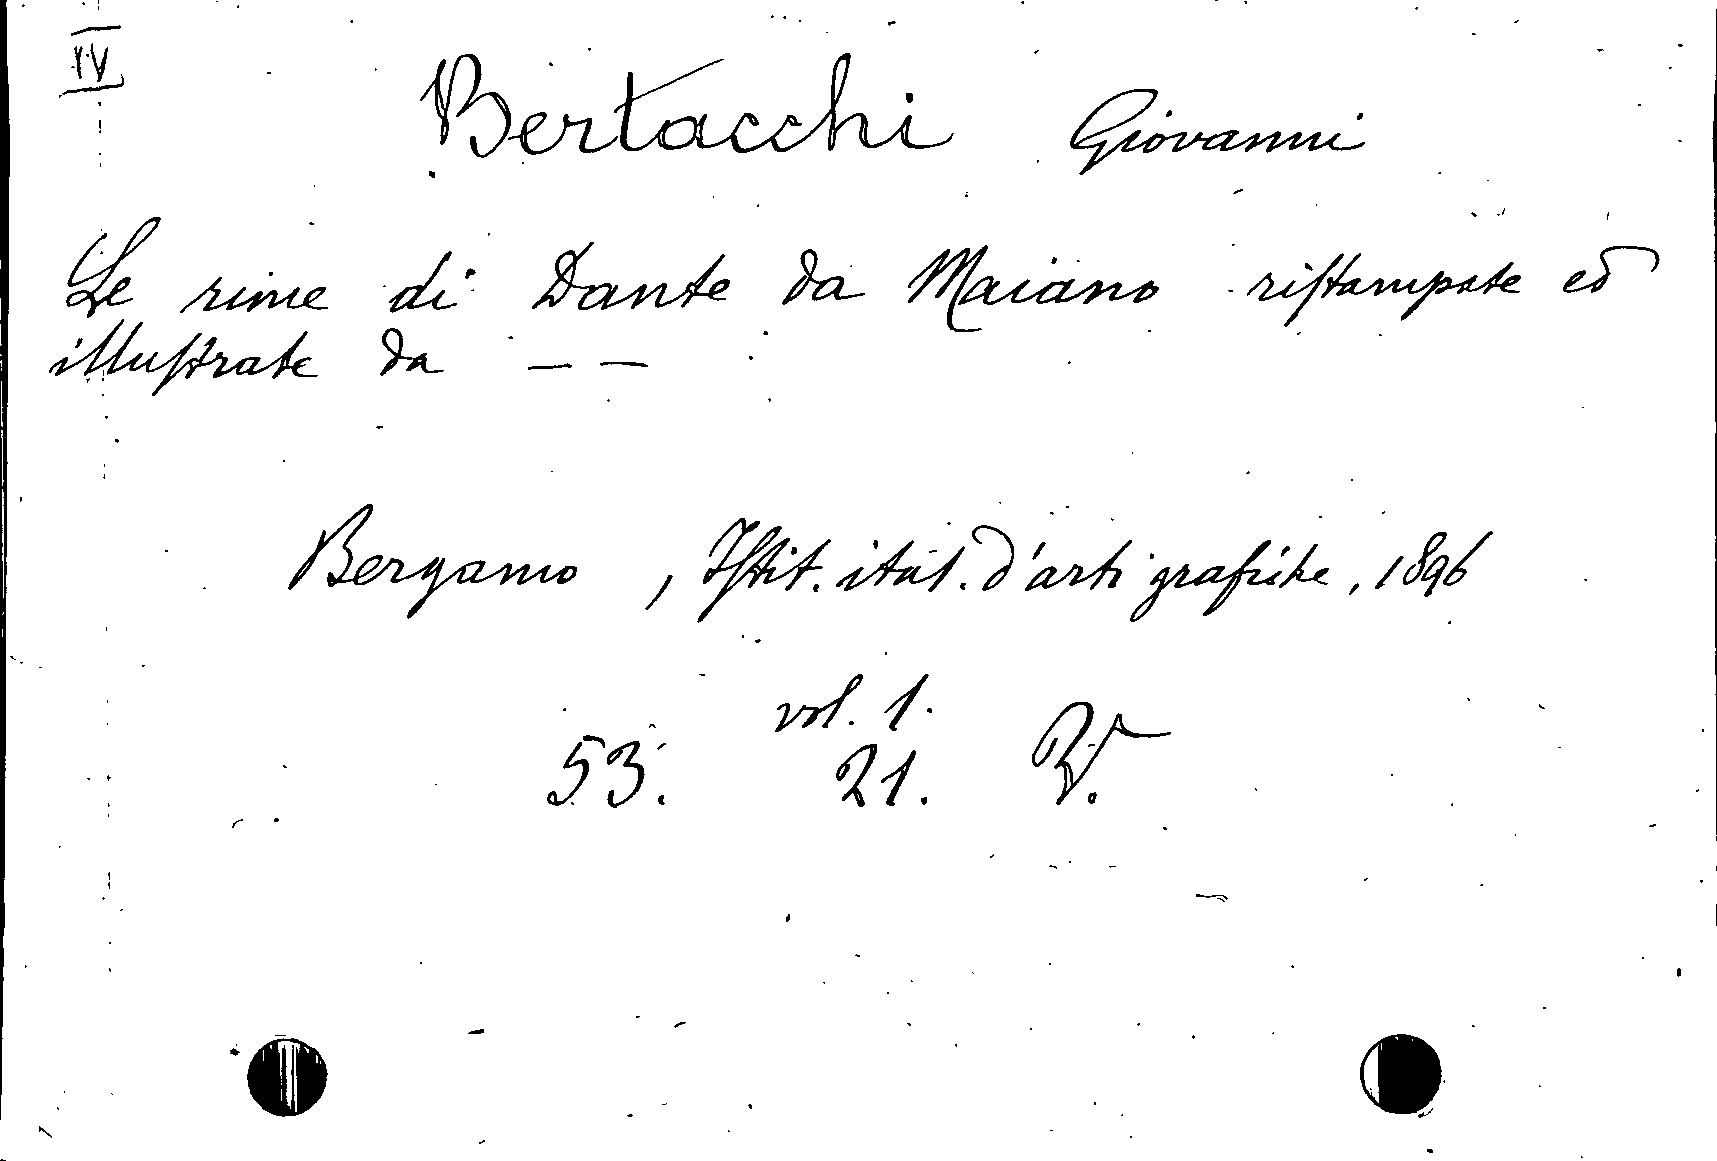 IV
Bertacchi Giovanni
Le rime di Dante da Maiano ristampate ed
illustrate da — —
Bergamo, Istit. ital. d'arti grafiche, 1896
vol. 1.
53. 21.